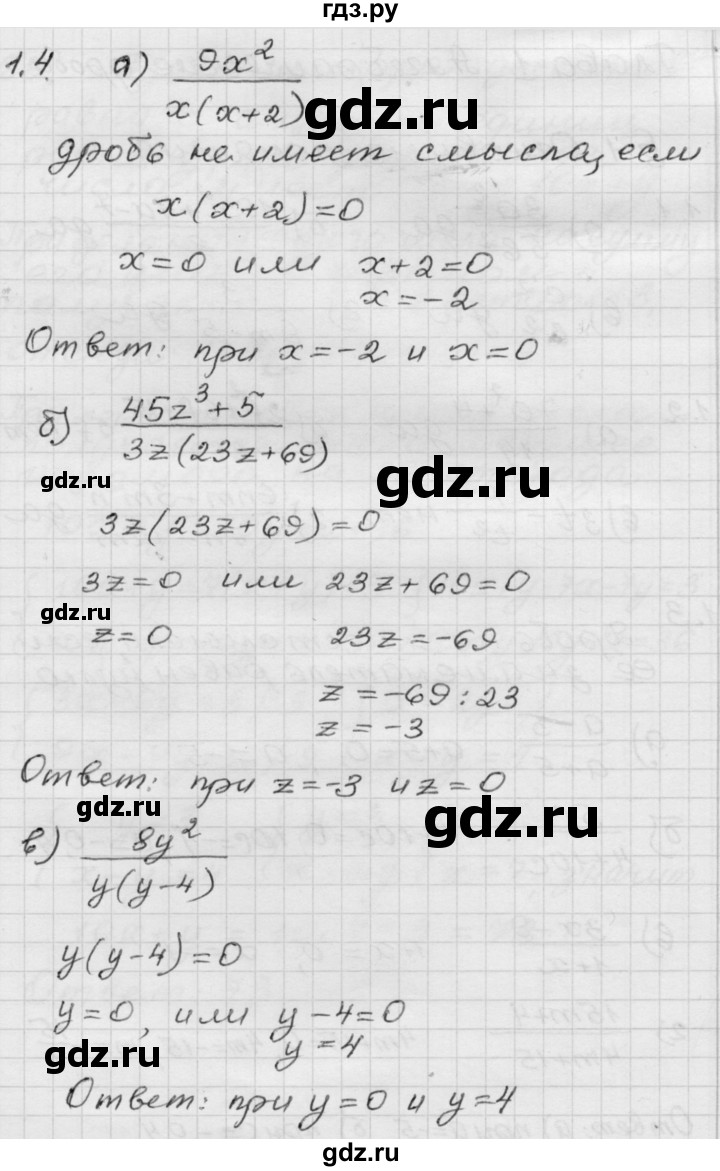 гдз.ру
1.4. а) 9x²/x(x+2)
gdz.ru
дробь не имеет смысла, если
x(x+2)=0
gdz.ru
x=0 или x+2=0
x=-2
Ответ: при x=-2 и x=0
б) 45z³+5/3z(23z+69)
gdz.ru gdz.ru
3z(23z+69)=0
3z=0 или 23z+69=0
gdz.ru
z=0 23z=-69
z=-69:23
z=-3
Ответ: при z=-3 и z=0
gdz.ru gdz.ru
в) 8y²/y(y-4)
y(y-4)=0
y=0, или y-4=0
gdz.ru
y=4
Ответ: при y=0 и y=4
gdz.ru